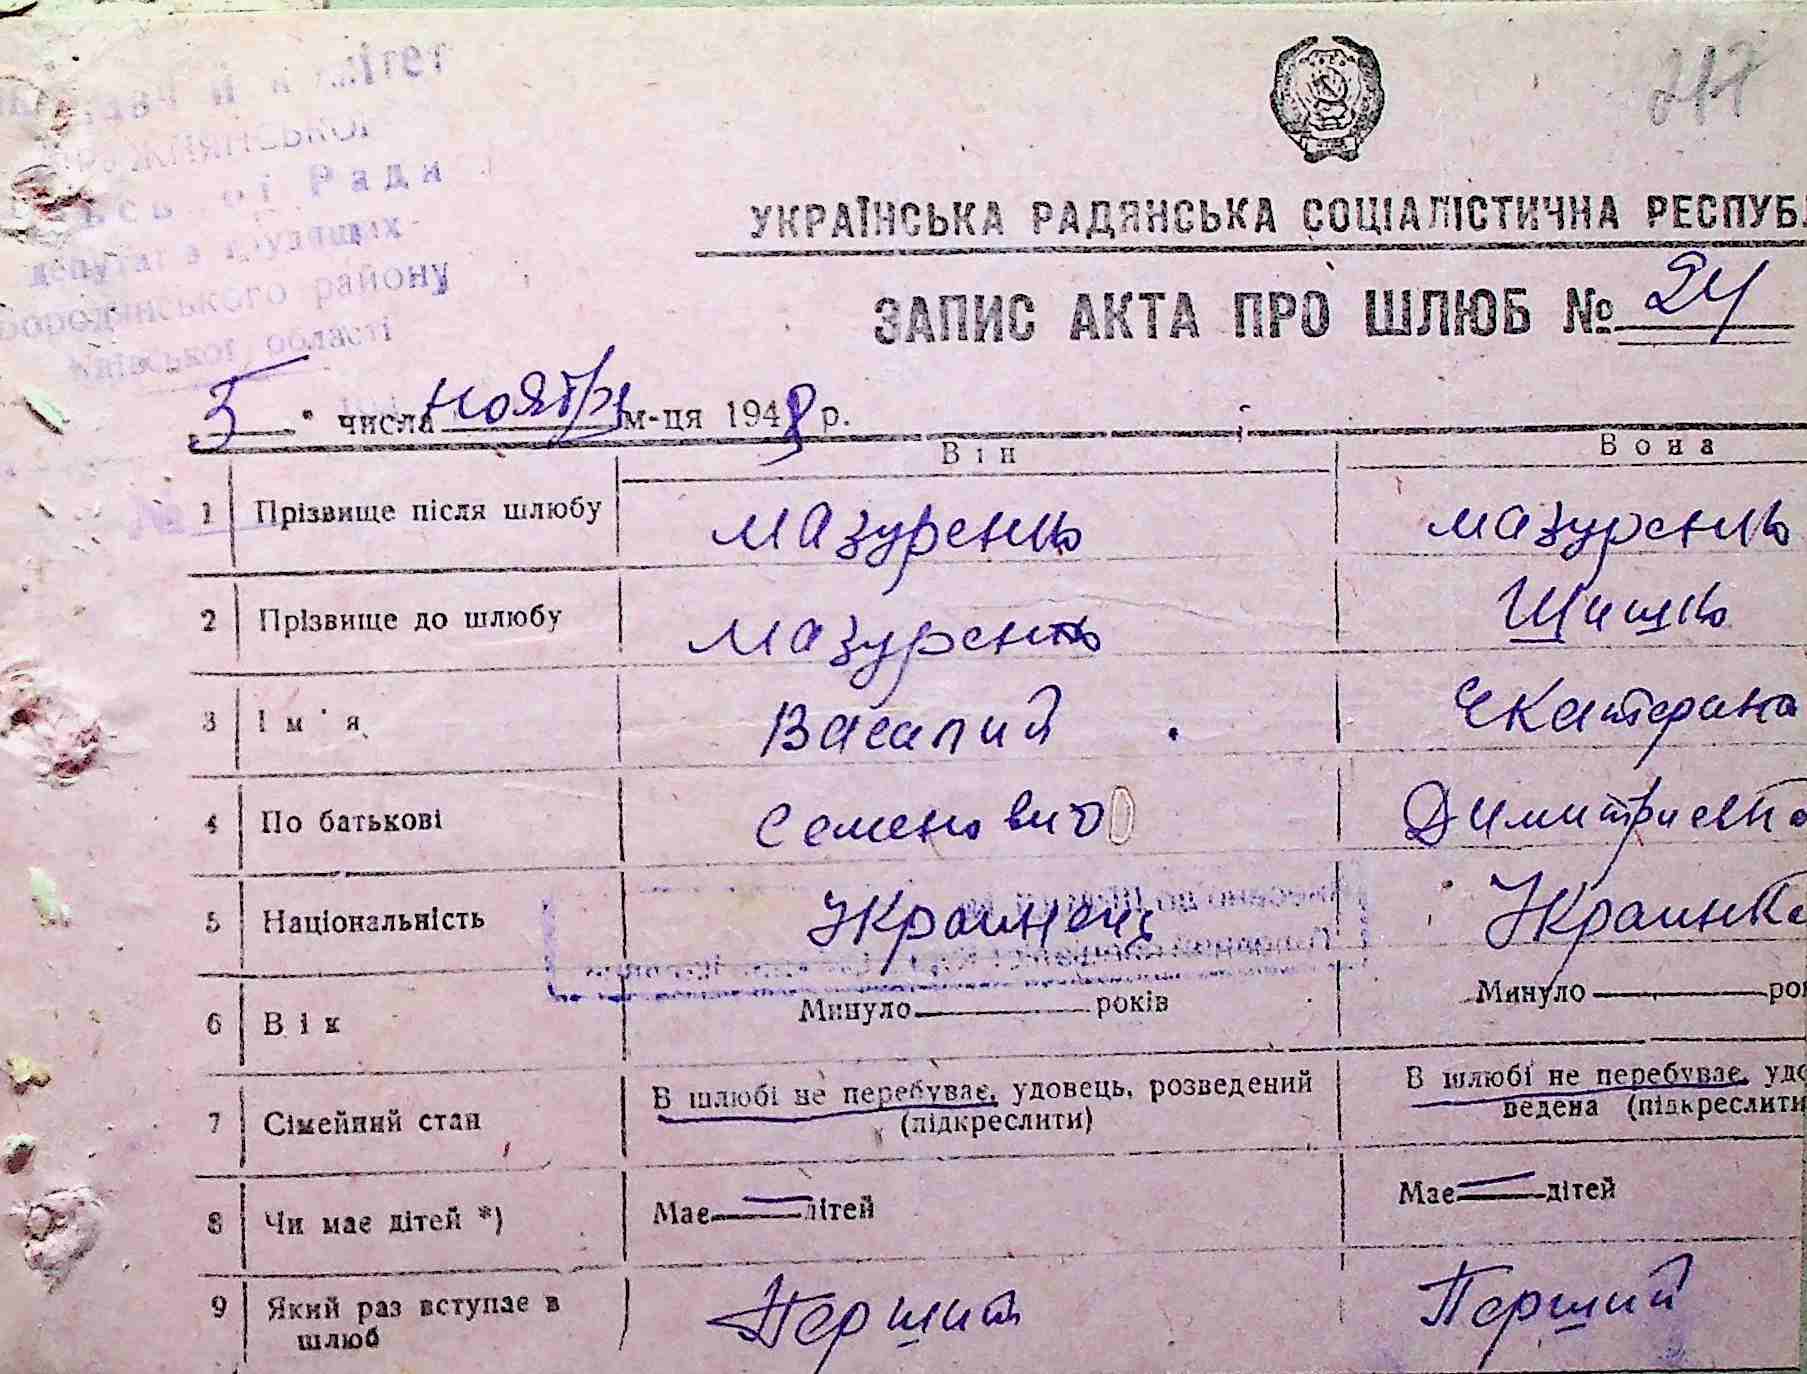 217
Ради
депутатів трудящих
Бородянського району
Київської області
УКРАЇНСЬКА РАДЯНСЬКА СОЦІАЛІСТИЧНА РЕСПУБ
ЗАПИС АКТА ПРО ШЛЮБ № 24
5 " числа ноября м-ця 1948 р.
Він Вона
1 Прізвище після шлюбу Мазуренко Мазуренко
2 Прізвище до шлюбу Мазуренко Шишко
3 Ім'я Василий Екатерина
4 По батькові Семенович Димитриевна
5 Національність Украинець Украинка
6 Вік Минуло років Минуло ро
7 Сімейний стан В шлюбі не перебуває, удовець, розведений (підкреслити) В шлюбі не перебуває, удо ведена (підкреслити
8 Чи має дітей *) Має — дітей Має — дітей
9 Який раз вступає в шлюб Перший Перший